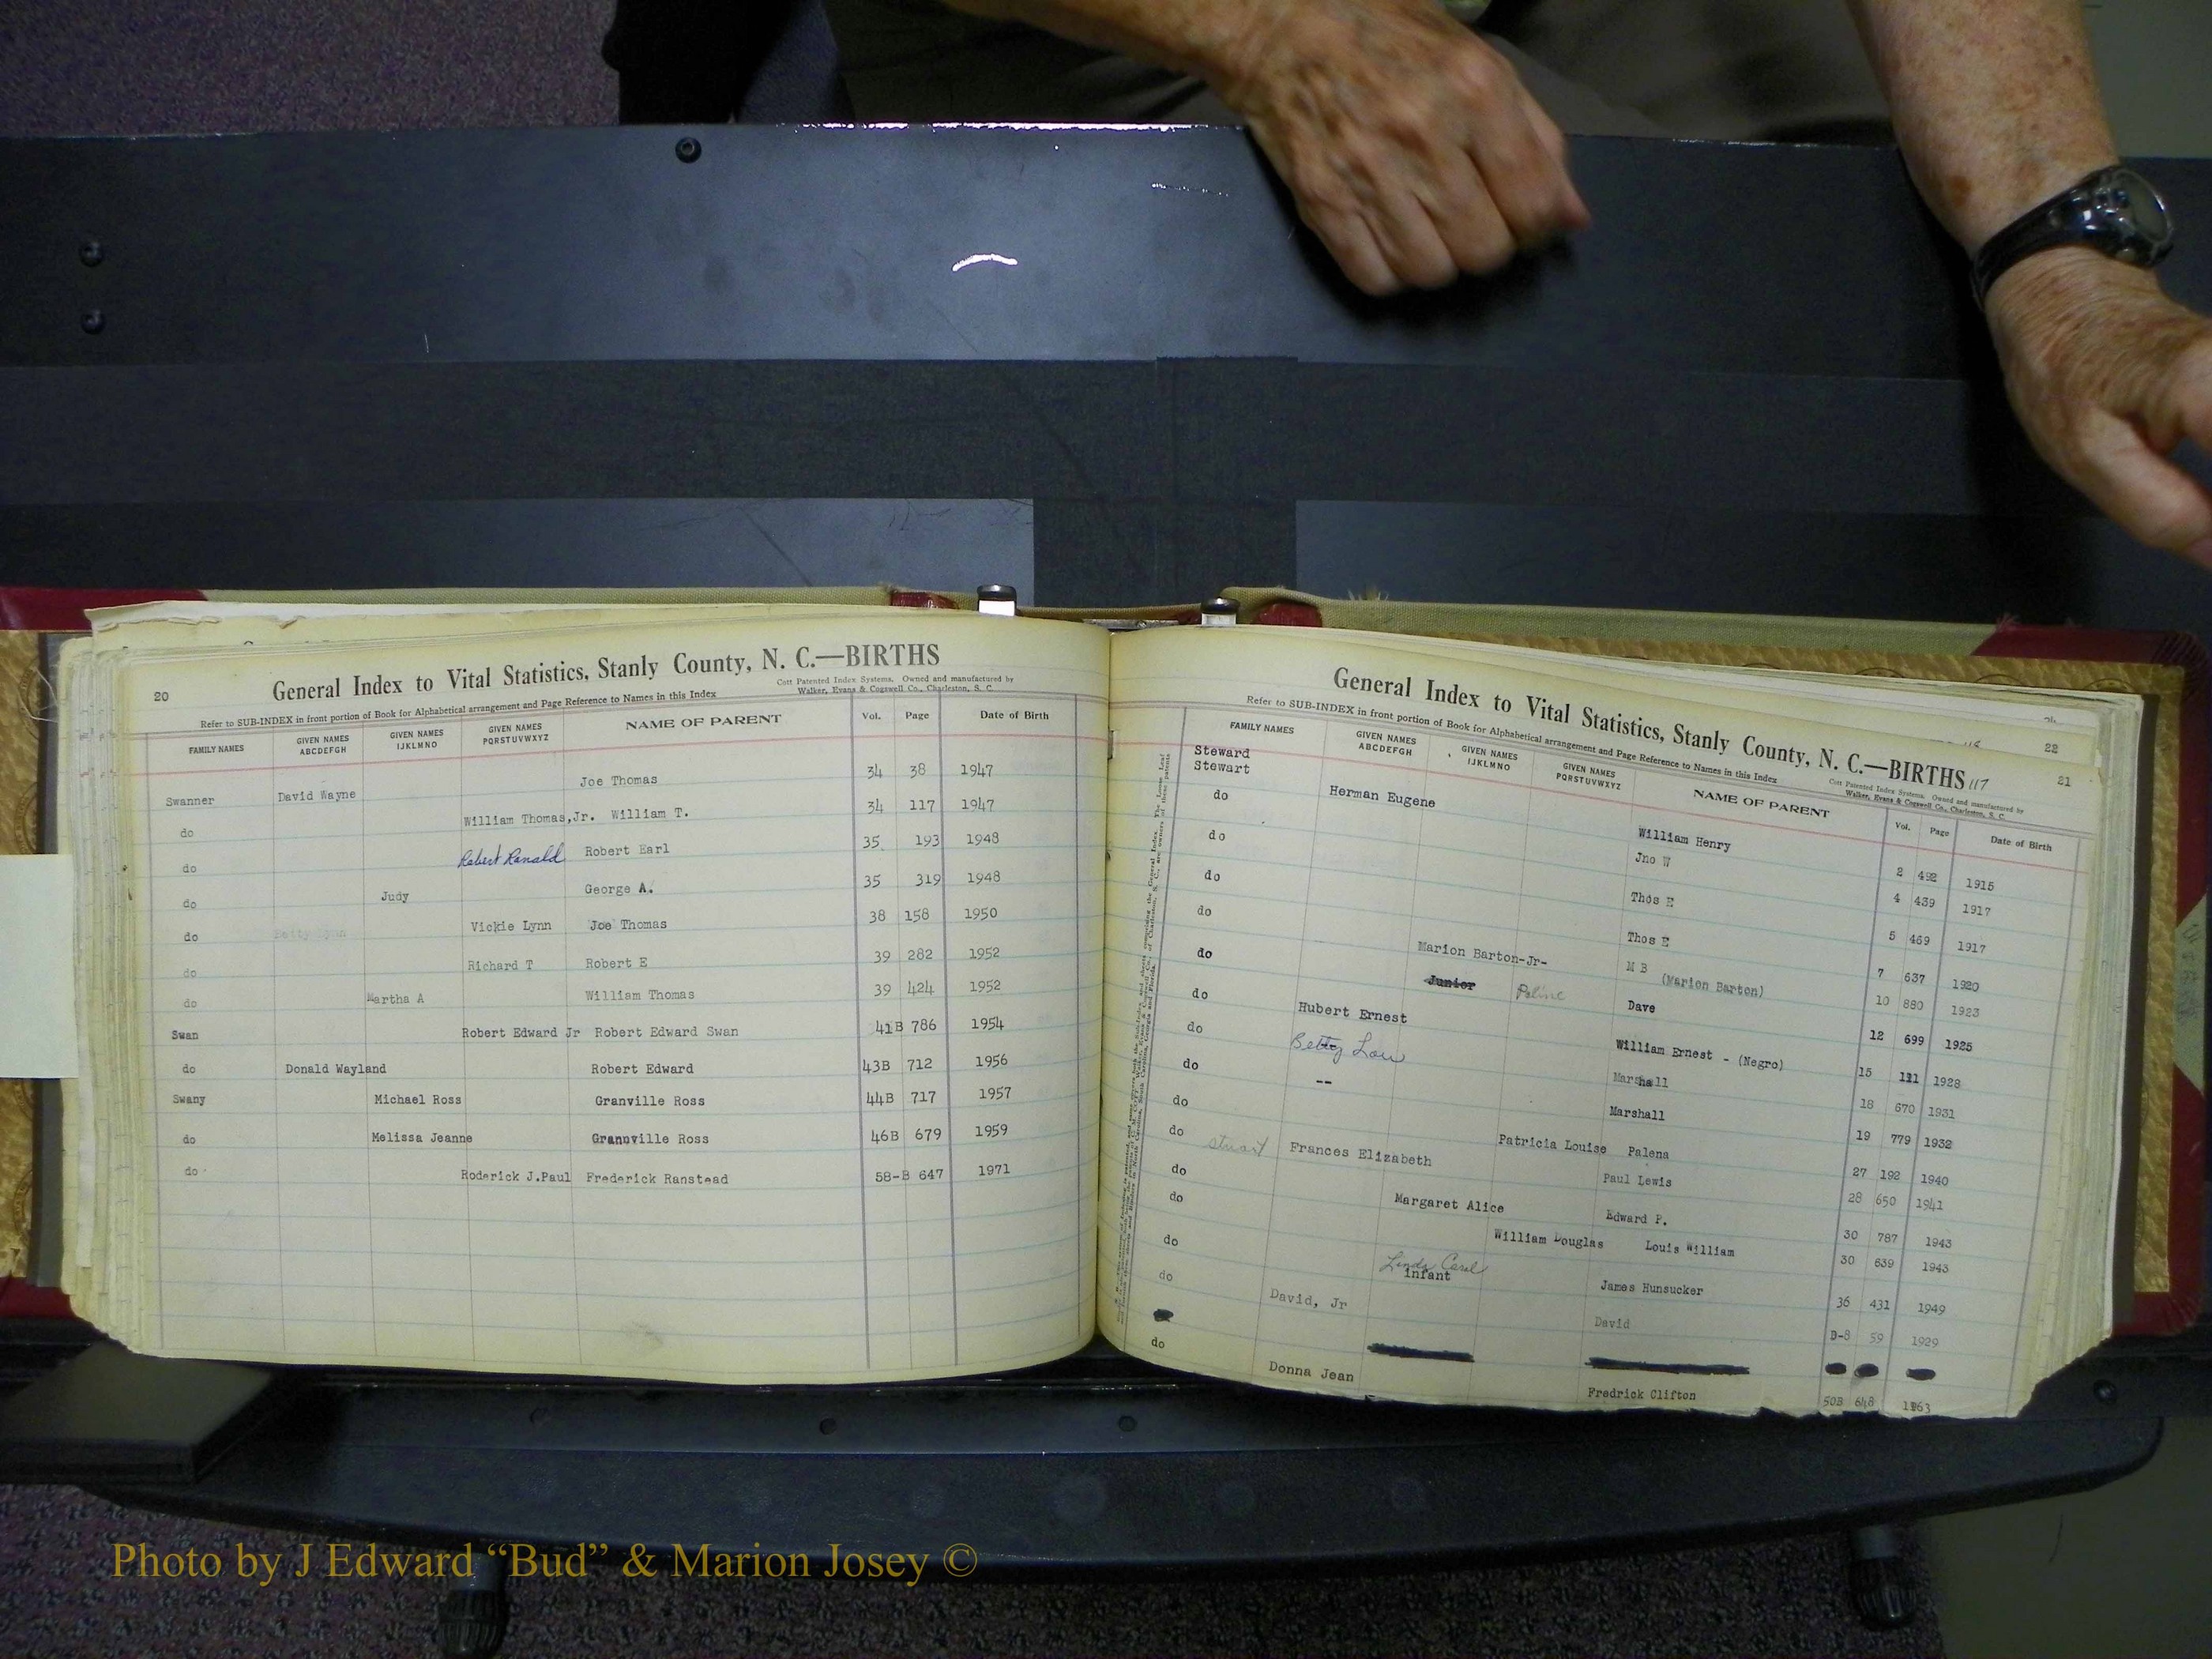 20
General Index to Vital Statistics, Stanly County, N. C.—BIRTHS
Cott Patented Index Systems. Owned and manufactured by
Walker, Evans & Cogswell Co., Charleston, S. C.
Refer to SUB-INDEX in front portion of Book for Alphabetical arrangement and Page Reference to Names in this Index
FAMILY NAMES GIVEN NAMES ABCDEFGH GIVEN NAMES IJKLMNO GIVEN NAMES PQRSTUVWXYZ NAME OF PARENT Vol. Page Date of Birth
Swanner David Wayne Joe Thomas 34 38 1947
do William Thomas,Jr. William T. 34 117 1947
do Robert Ronald Robert Earl 35 193 1948
do Judy George A. 35 319 1948
do Betty Lynn Vickie Lynn Joe Thomas 38 158 1950
do Richard T Robert E 39 282 1952
do Martha A William Thomas 39 424 1952
Swan Robert Edward Jr Robert Edward Swan 41B 786 1954
do Donald Wayland Robert Edward 43B 712 1956
Swany Michael Ross Granville Ross 44B 717 1957
do Melissa Jeanne Granville Ross 46B 679 1959
do Roderick J.Paul Frederick Ranstead 58-B 647 1971
22
General Index to Vital Statistics, Stanly County, N. C.—BIRTHS 117
21
Cott Patented Index Systems. Owned and manufactured by
Walker, Evans & Cogswell Co., Charleston, S. C.
Refer to SUB-INDEX in front portion of Book for Alphabetical arrangement and Page Reference to Names in this Index
FAMILY NAMES GIVEN NAMES ABCDEFGH GIVEN NAMES IJKLMNO GIVEN NAMES PQRSTUVWXYZ NAME OF PARENT Vol. Page Date of Birth
Steward William Henry 2 492 1915
Stewart Jno W 4 439 1917
do Herman Eugene Thos E 5 469 1917
do Thos E 7 637 1920
do M B (Marion Barton) 10 880 1923
do Marion Barton-Jr- Dave 12 699 1925
do Junior Poline William Ernest - (Negro) 15 111 1928
do Hubert Ernest Marshall 18 670 1931
do Betty Lou Marshall 19 779 1932
do -- Patricia Louise Palena 27 192 1940
do Paul Lewis 28 650 1941
do Stuart Frances Elizabeth Edward P. 30 787 1943
do Margaret Alice William Douglas Louis William 30 639 1943
do Linda Carol
Infant James Hunsucker 36 431 1949
do David, Jr David D-8 59 1929
do Donna Jean Fredrick Clifton 50B 648 1963
Photo by J Edward “Bud” & Marion Josey ©